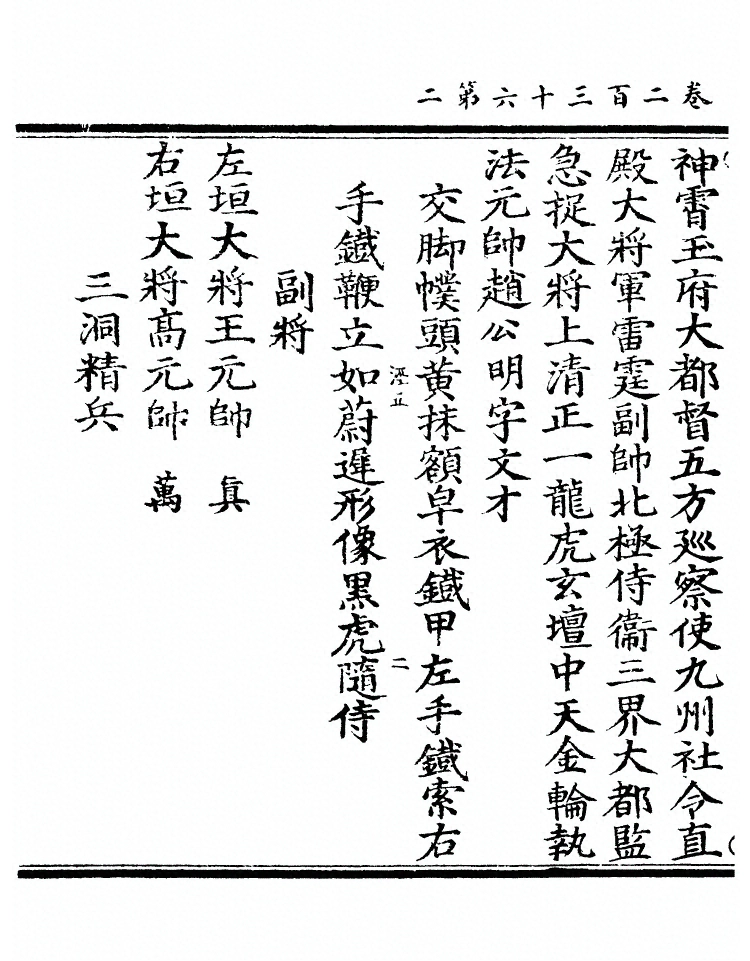 卷二百三十六第二
神霄玉府大都督五方廵察使九州社令直
殿大將軍雷霆副帥北極侍衞三界大都監
急捉大將上清正一龍虎玄壇中天金輪執
法元帥趙公明字文才
交脚幞頭黄抹額皁衣鐵甲左手鐵索右
涇五
二
手鐵鞭立如蔚遲形像黑虎隨侍
副將
左垣大將王元帥 真
右垣大將髙元帥 萬
三洞精兵